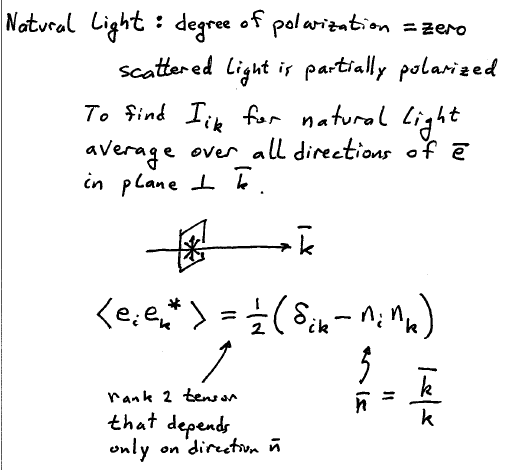 Natural Light : degree of polarization = zero
scattered light is partially polarized
To find I_{ik} for natural light
average over all directions of e̅
in plane ⊥ k̅ .
k̅
⟨e_i e_k^*⟩ = 1/2 ( δ_{ik} − n_i n_k )
rank 2 tensor
that depends
only on direction n̅
n̅ = k̅/k